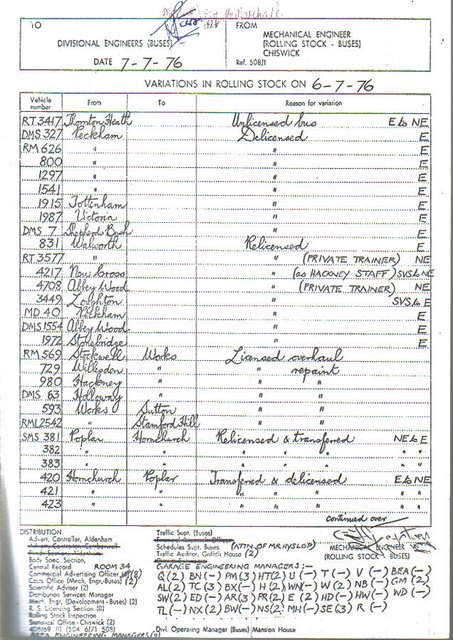 TO
FROM
DIVISIONAL ENGINEERS (BUSES)
MECHANICAL ENGINEER
(ROLLING STOCK - BUSES)
CHISWICK
DATE 7-7-76
Ref. 508/1
VARIATIONS IN ROLLING STOCK ON 6-7-76
Vehicle number From To Reason for variation
RT 3417 Thornton Heath Unlicensed bus E to NE
DMS 327 Peckham Delicensed E
RM 626 " " E
800 " " E
1297 " " E
1541 " " E
1915 Tottenham " E
1987 Victoria " E
DMS 7 Shepherds Bush " E
831 Walworth Relicensed E
RT 3577 " (PRIVATE TRAINER) NE
4217 New Cross " (as HACKNEY STAFF) SVS to NE
4708 Abbey Wood " (PRIVATE TRAINER) NE
3449 Loughton " SVS to E
MD 40 Peckham " E
DMS 1554 Abbey Wood " E
1972 Stonebridge " E
RM 569 Stockwell Works Licensed overhaul
729 Willesden " " repaint
980 Hackney " " "
DMS 63 Holloway " " "
593 Works Sutton " "
RML 2542 " Stamford Hill " "
SMS 381 Poplar Hornchurch Relicensed & transfered NE to E
382 " " " " " "
383 " " " " " "
420 Hornchurch Poplar Transfered & delicensed E to NE
421 " " " " " "
423 " " " " " "
continued over
DISTRIBUTION
Advert. Controller, Aldenham
Body Spec. Section,
Central Record ROOM 34
Commercial Advertising Officer
Costs Office (Mech. Engr.-Buses) (2)
Scientific Adviser (2)
Distribution Services Manager
Mech. Engr. (Development - Buses) (2)
R. S. Licensing Section (8)
Rolling Stock Inspection
Statistical Office, C
Traffic Supt. (Buses)
Schedules Supt. Buses (ATTN OF MR HYSLOP)
Traffic Auditor, Griffith House (2)
MECHANICAL ENGINEER
(ROLLING STOCK - BUSES)
GARAGE ENGINEERING MANAGERS:-
Q (2) BN (-) PM (3) HT (2) U (-) T (-) V (-) BEA (-)
Div. Operating Manager (Buses) Mansion House